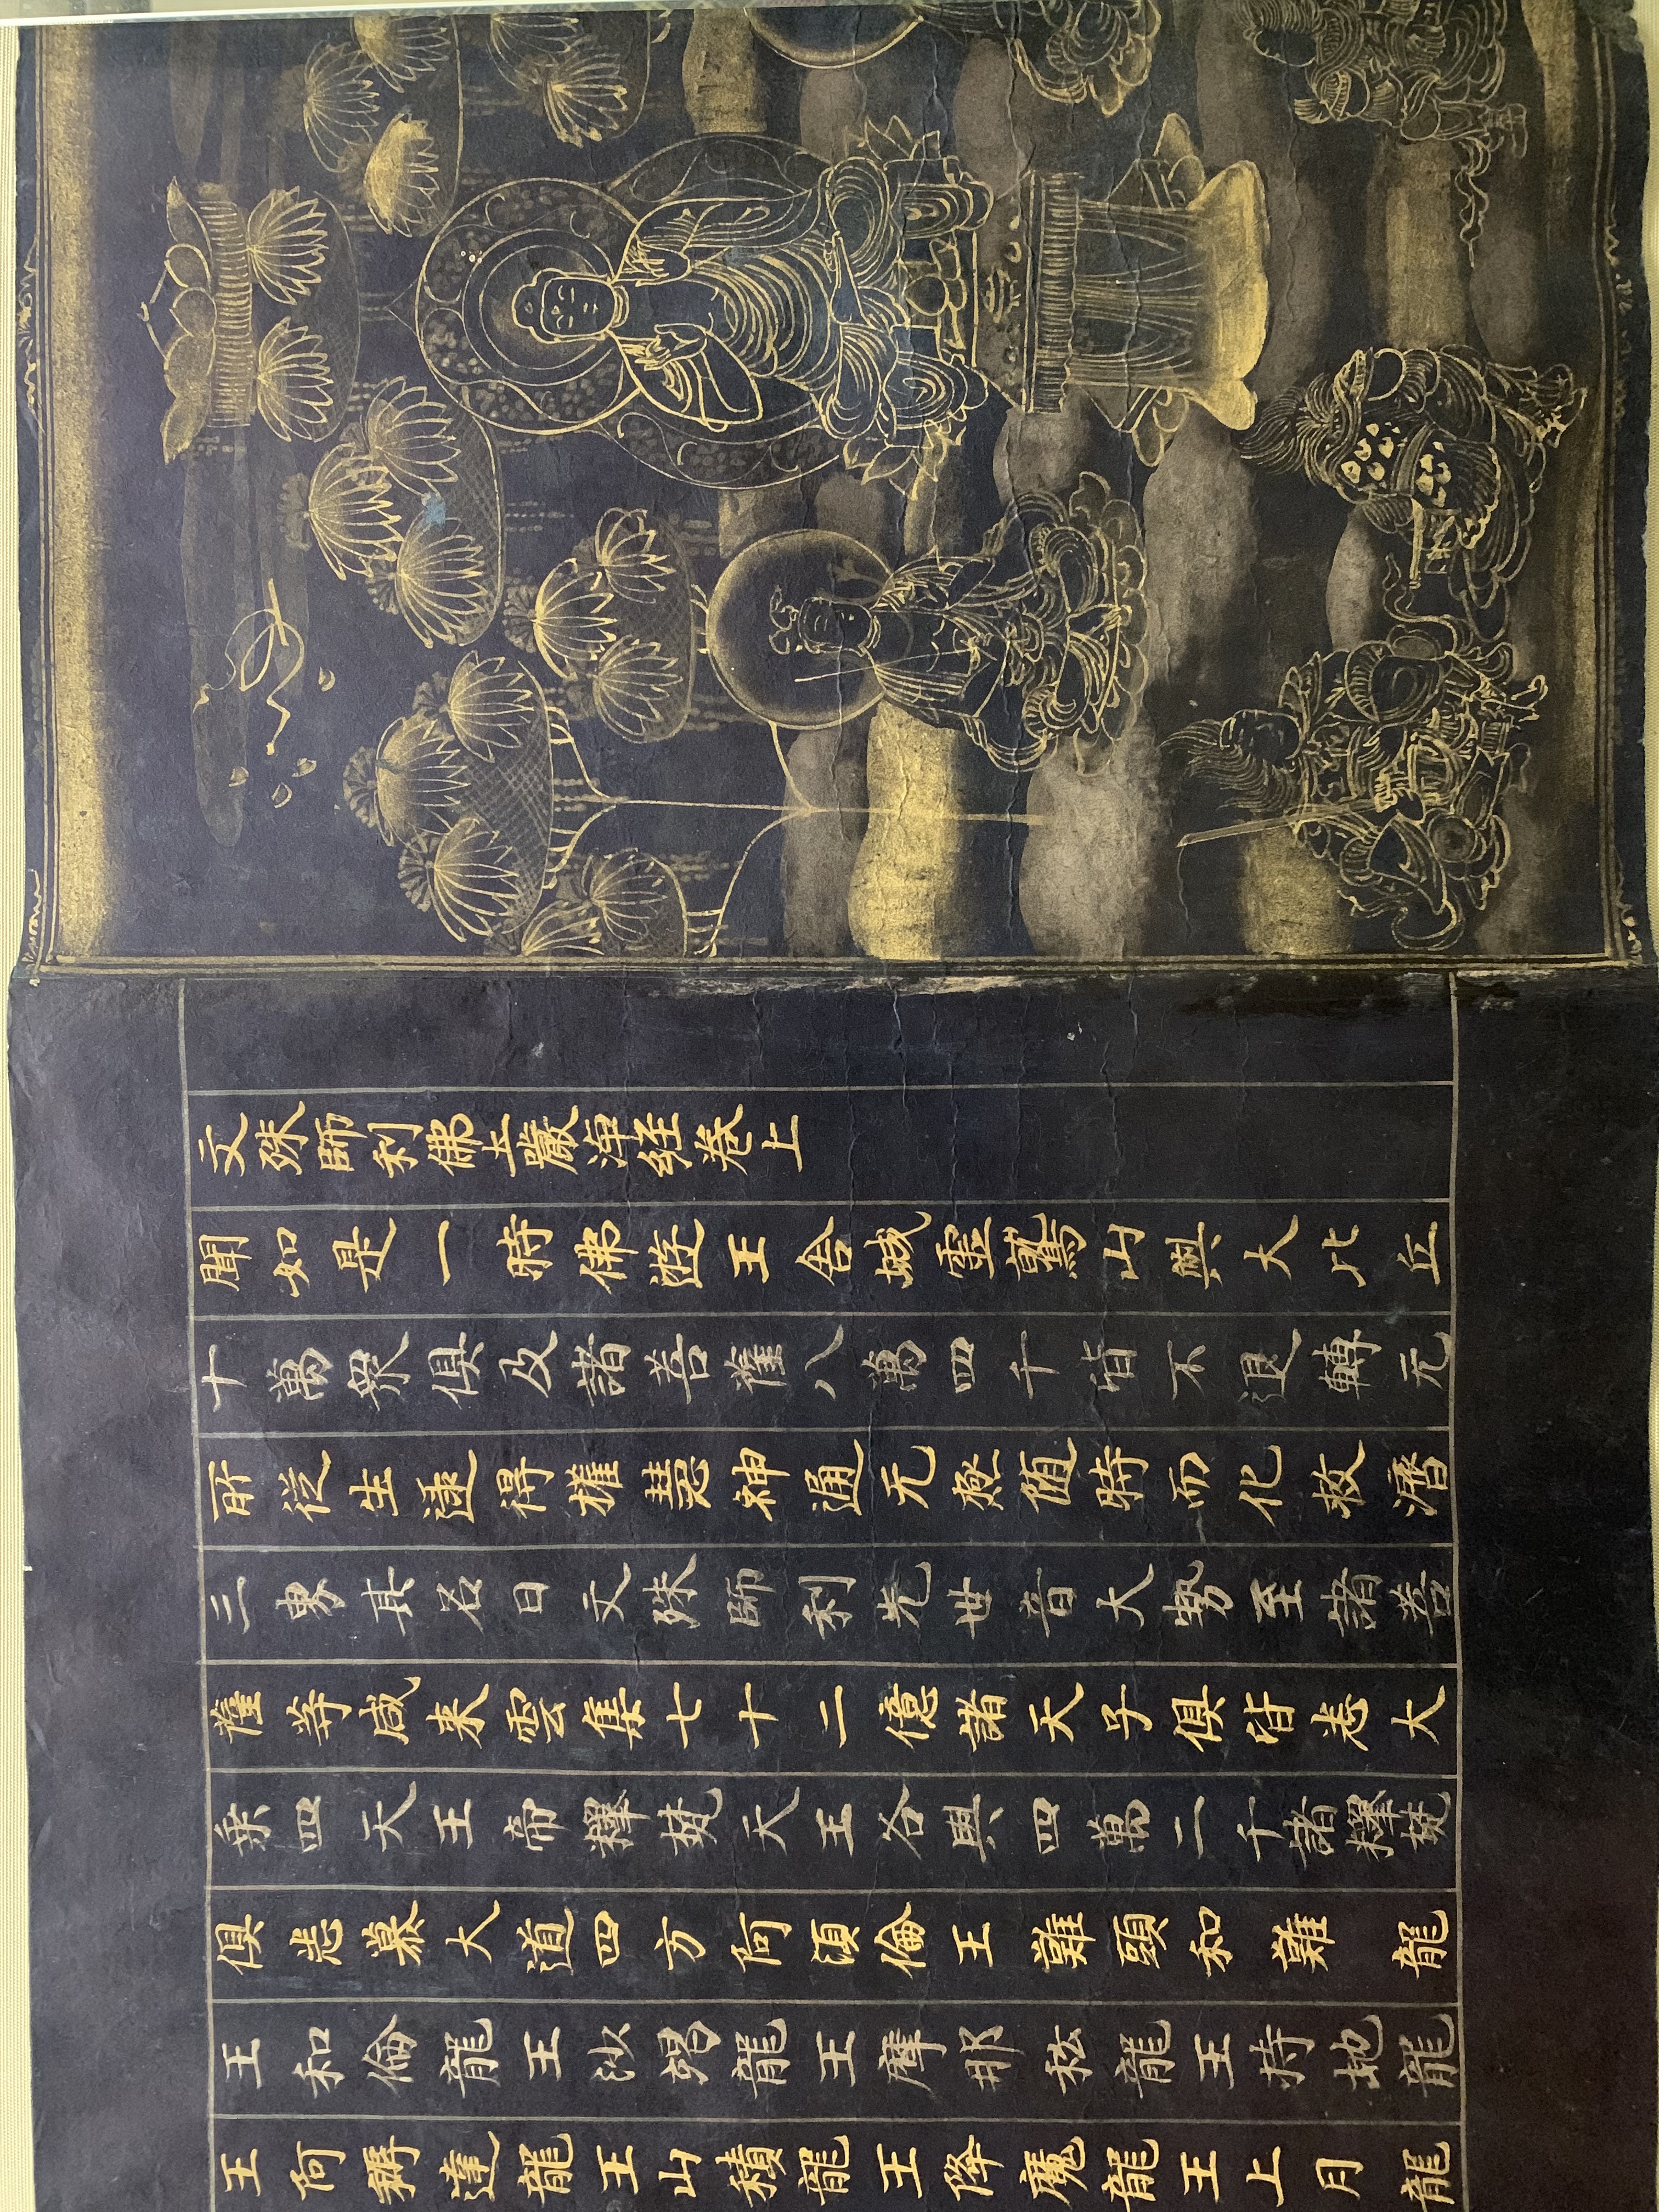 文殊師利佛土嚴淨経卷上
聞如是一時佛遊王舍城靈鷲山與大比丘
十萬衆俱及諸菩薩八萬四千皆不退轉无
所從生逮得權慧神通无極随時而化救濟
三界其名曰文殊師利光世音大勢至諸菩
薩等咸來雲集七十二億諸天子俱皆志大
乘四天王帝釋梵天王各與四萬二千諸釋梵
俱志慕大道四方阿須倫王難頭和難龍
王和倫龍王沙竭龍王摩那私龍王持地龍
王阿耨達龍王山積龍王降魔龍王上月龍